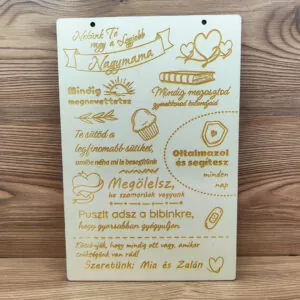 Nekünk Te
vagy a Legjobb
Nagymama
Mindig
megnevettetsz
Mindig megosztod
Te sütöd a
legfinomabb sütiket,
Oltalmazol
és segítesz
minden
nap
Megölelsz,
ha szomorúak vagyunk
Puszit adsz a bibinkre,
hogy gyorsabban gyógyuljon
Köszönjük, hogy mindig ott vagy, amikor
szükségünk van rád!
Szeretünk: Mia és Zalán